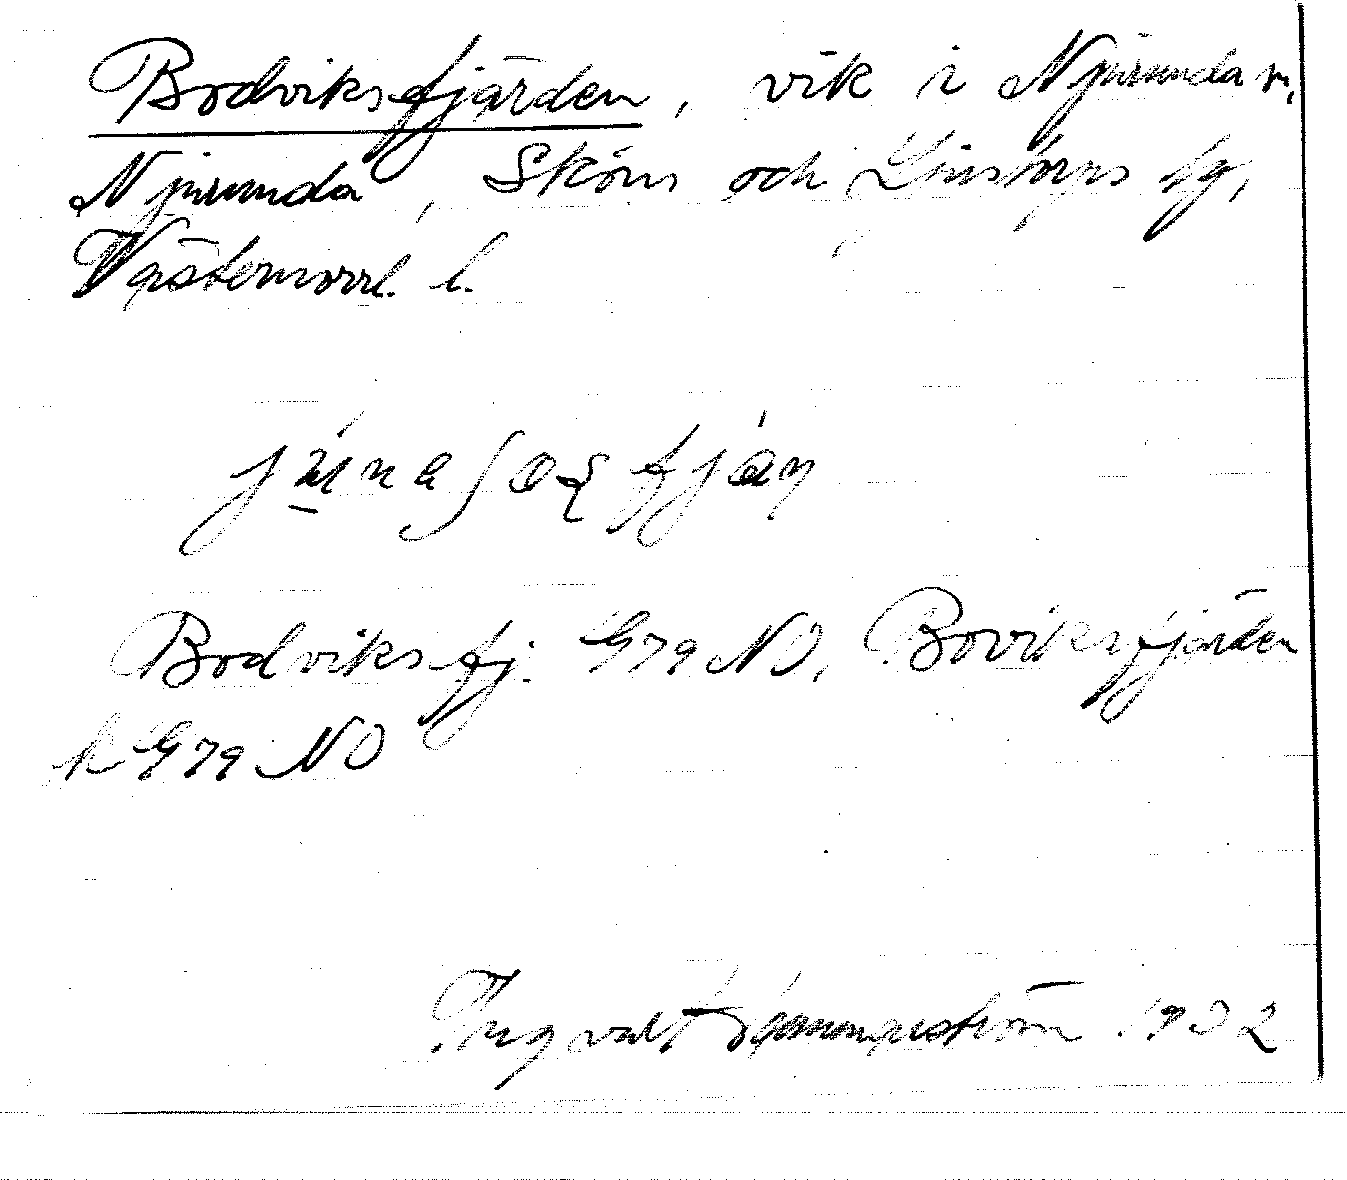 Bodviksfjärden, vik i Njurunda sn,
Njurunda, Sköns och Ljustorps tg,
Västernorrl. l.
Bodviksfj. G79 NO, Boviksfjärden
k G79 NO
Ingvald 1932